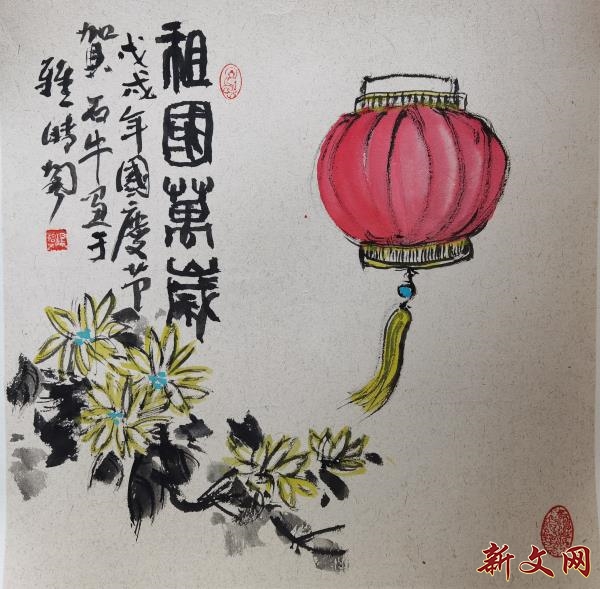 祖國萬歲
戊戌年國慶节
賀石牛画于
雅
新文网